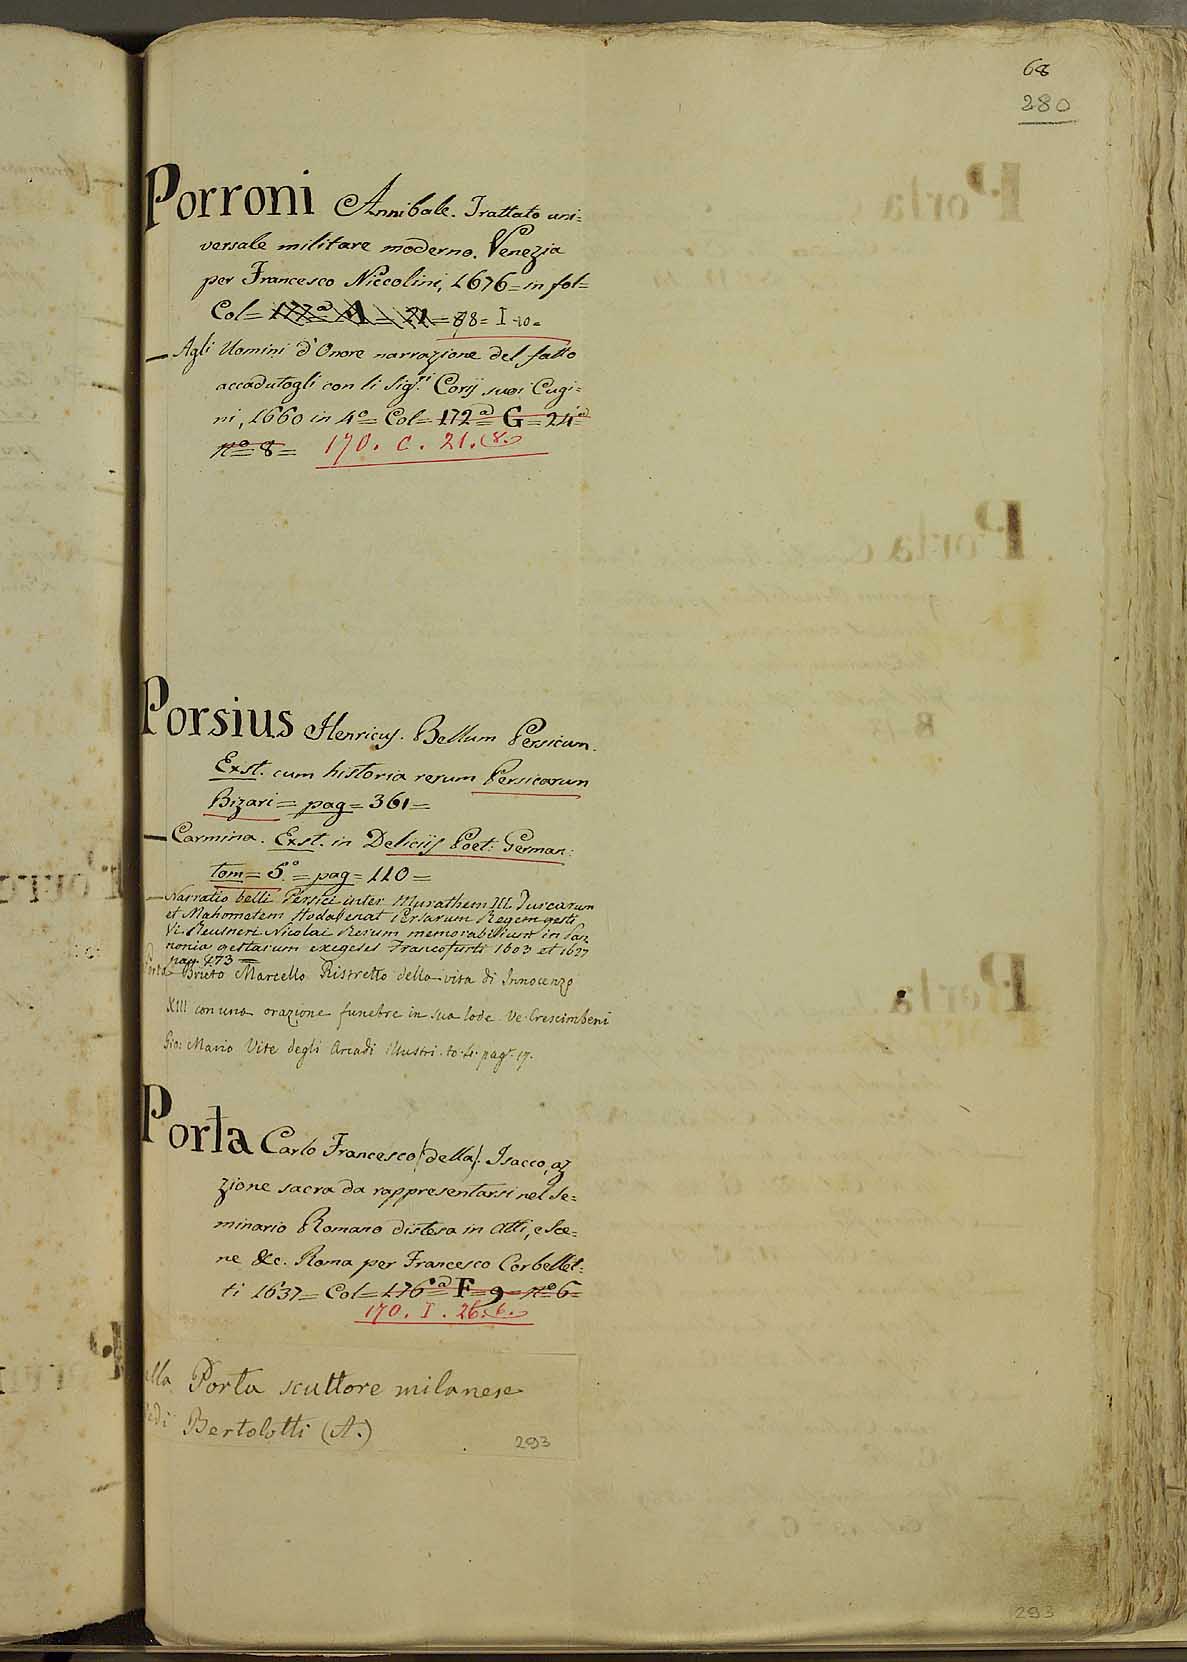 68
280
Porroni Annibale. Trattato uni=
versale militare moderno. Venezia
per Francesco Niccolini, 1676 = in fol=
Col= 177ª = A = 21 = 88 = I = 10 =
— Agli Uomini d'Onore narrazione del fatto
accadutogli con li Sig.ri Corij suoi Cugi=
ni, 1660 in 4º = Col= 172ª = G = 24ª
nº = 8 = 170. C. 21. (8.)
Porsius Henricus. Bellum Persicum.
Exst. cum historia rerum Persicarum
Bizari = pag = 361 =
— Carmina. Exst. in Delicijs Poet: German:
tom = 5.º = pag = 110 =
— Narratio belli Persici inter Murathem III. Turcarum
et Mahometem Hodabenat Persarum Regem gesti
Vi. Reusneri Nicolai Rerum memorabilium in Pan
nonia gestarum exegeses Francofurti 1603 et 1627
pag. 173 =
Porta Brieto Marcello Ristretto della vita di Innocenzo
XIII con una orazione funebre in sua lode. Ve. Crescimbeni
Gio: Mario Vite degli Arcadi illustri. to. 4. pag. 17.
Porta Carlo Francesco (della). Isacco, az
zione sacra da rappresentarsi nel Se=
minario Romano distesa in Atti, e Sce=
ne &c. Roma per Francesco Corbellet=
ti 1637 = Col= 176ª F = 9 = nº 6 =
170. I. 26. (6.)
ella Porta scultore milanese
edi Bertolotti (A.)
293
293